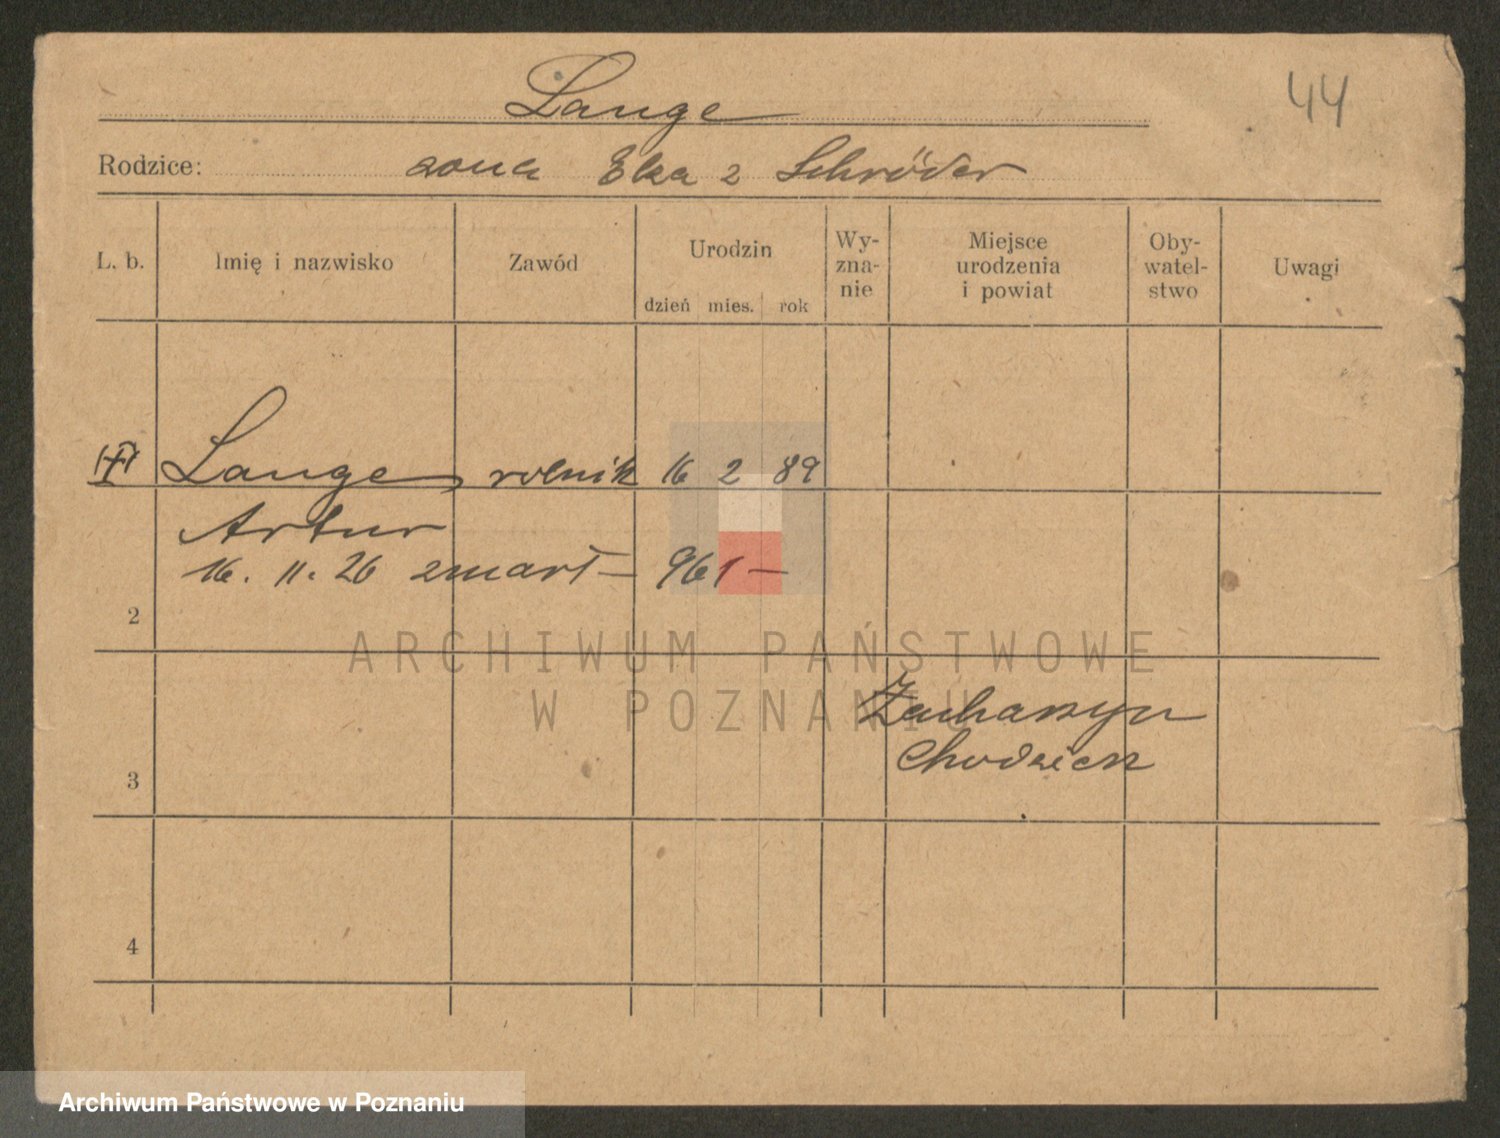 44
Lange
Rodzice: żona Elza z Schröder
L. b. Imię i nazwisko Zawód Urodzin dzień mies. rok Wy-zna-nie Miejsce urodzenia i powiat Oby-watel-stwo Uwagi
Lange, rolnik 16 2 89
Artur
16. 11. 26 zmarł – 961 –
2
3
Zacharzyn
Chodzież
4
ARCHIWUM PAŃSTWOWE
W POZNANIU
Archiwum Państwowe w Poznaniu